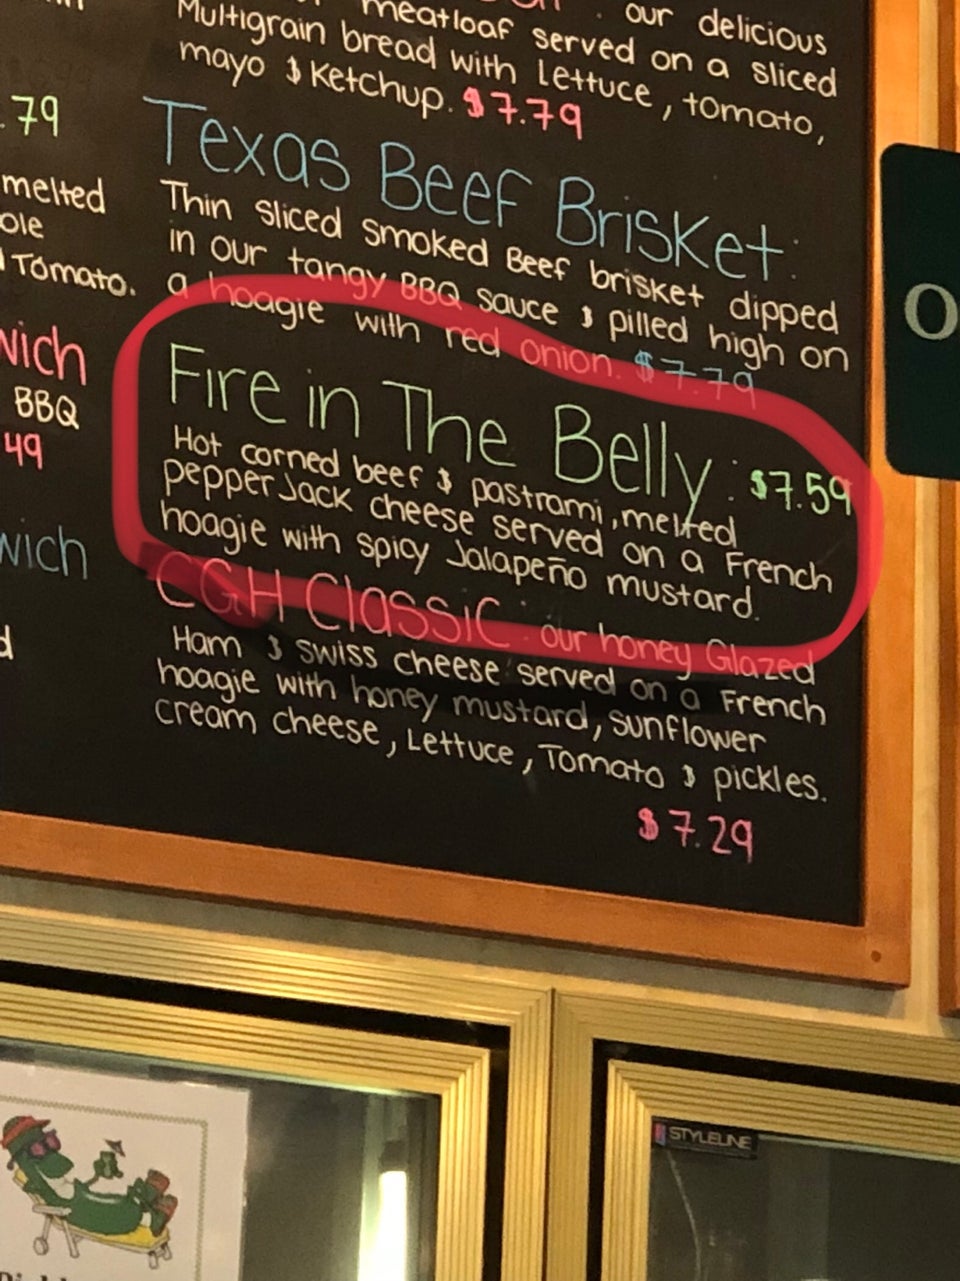 our delicious
meatloaf served on a sliced
Multigrain bread with Lettuce, tomato,
mayo & Ketchup. $7.79
Texas Beef Brisket:
Thin sliced smoked Beef brisket dipped
in our tangy BBQ sauce & pilled high on
a hoagie with red onion. $7.79
Fire in The Belly: $7.59
Hot corned beef & pastrami, melted
pepper Jack cheese served on a French
hoagie with spicy Jalapeño mustard.
CGH Classic: our honey Glazed
Ham & swiss cheese served on a French
hoagie with honey mustard, sunflower
cream cheese, Lettuce, Tomato & pickles.
$7.29
.79
melted
Tomato.
wich
BBQ
49
wich
O
STYLELINE